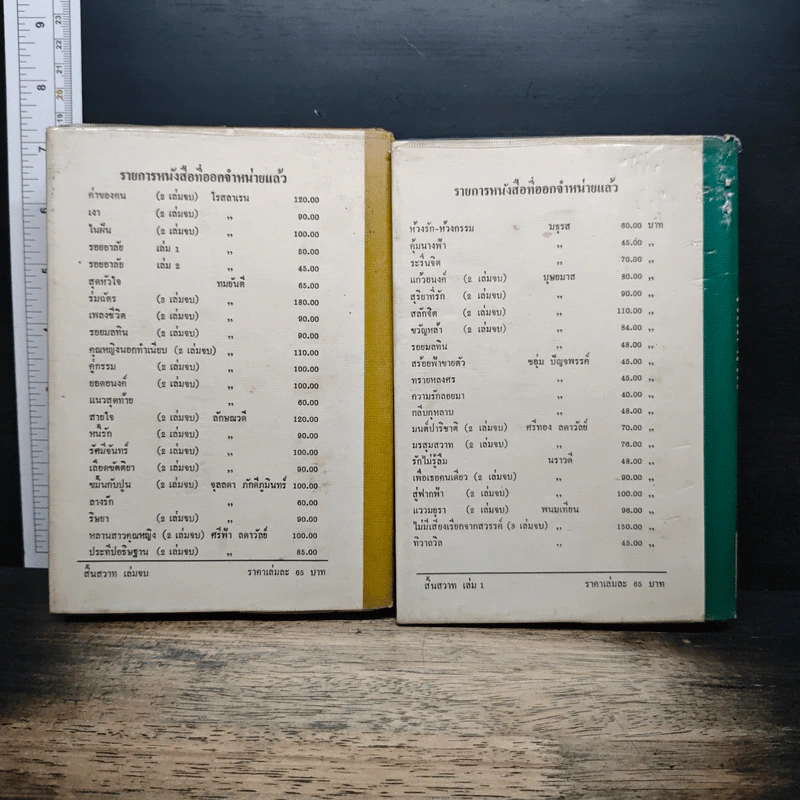 รายการหนังสือที่ออกจำหน่ายแล้ว
ค่าของคน (2 เล่มจบ) โรสลาเรน 120.00
เงา (2 เล่มจบ) ,, 90.00
ในฝัน (2 เล่มจบ) ,, 100.00
รอยอาลัย เล่ม 1 ,, 50.00
รอยอาลัย เล่ม 2 ,, 45.00
สุดหัวใจ ทมยันตี 65.00
ร่มฉัตร (2 เล่มจบ) ,, 180.00
เพลงชีวิต (2 เล่มจบ) ,, 90.00
รอยมลทิน (2 เล่มจบ) ,, 90.00
คุณหญิงนอกทำเนียบ (2 เล่มจบ) ,, 110.00
คู่กรรม (2 เล่มจบ) ,, 100.00
ยอดอนงค์ (2 เล่มจบ) ,, 100.00
แนวสุดท้าย ,, 60.00
สายใจ (2 เล่มจบ) ลักษณวดี 120.00
หนี้รัก (2 เล่มจบ) ,, 90.00
รัศมีจันทร์ (2 เล่มจบ) ,, 100.00
เลือดขัตติยา (2 เล่มจบ) ,, 90.00
ขมิ้นกับปูน (2 เล่มจบ) จุลลดา ภักดีภูมินทร์ 100.00
ลางรัก ,, 60.00
ริษยา (2 เล่มจบ) ,, 90.00
หลานสาวคุณหญิง (2 เล่มจบ) ศรีฟ้า ลดาวัลย์ 100.00
ประทีปอธิษฐาน (2 เล่มจบ) ,, 85.00
สิ้นสวาท เล่มจบ ราคาเล่มละ 65 บาท
รายการหนังสือที่ออกจำหน่ายแล้ว
ห้วงรัก-ห้วงกรรม มธุรส 60.00 บาท
คุ้มนางฟ้า ,, 45.00 ,,
ระรื่นจิต ,, 70.00 ,,
แก้วอนงค์ (2 เล่มจบ) บุษยมาส 80.00 ,,
สุริยาที่รัก (2 เล่มจบ) ,, 90.00 ,,
สลักจิต (2 เล่มจบ) ,, 110.00 ,,
ขวัญหล้า (2 เล่มจบ) ,, 84.00 ,,
รอยมลทิน ,, 48.00 ,,
สร้อยฟ้าขายตัว ชอุ่ม ปัญจพรรค์ 45.00 ,,
ทรายหลงศร ,, 45.00 ,,
ความรักลอยมา ,, 40.00 ,,
กลีบกุหลาบ ,, 48.00 ,,
มนต์ปาริชาติ (2 เล่มจบ) ศรีทอง ลดาวัลย์ 70.00 ,,
มรสุมสวาท (2 เล่มจบ) ,, 76.00 ,,
รักไม่รู้ลืม นราวดี 48.00 ,,
เพื่อเธอคนเดียว (2 เล่มจบ) ,, 90.00 ,,
สู่ฟากฟ้า (2 เล่มจบ) ,, 100.00 ,,
แววมยุรา (2 เล่มจบ) พนมเทียน 96.00 ,,
ไม่มีเสียงเรียกจากสวรรค์ (3 เล่มจบ) ,, 150.00 ,,
ทิวาถวิล ,, 45.00 ,,
สิ้นสวาท เล่ม 1 ราคาเล่มละ 65 บาท